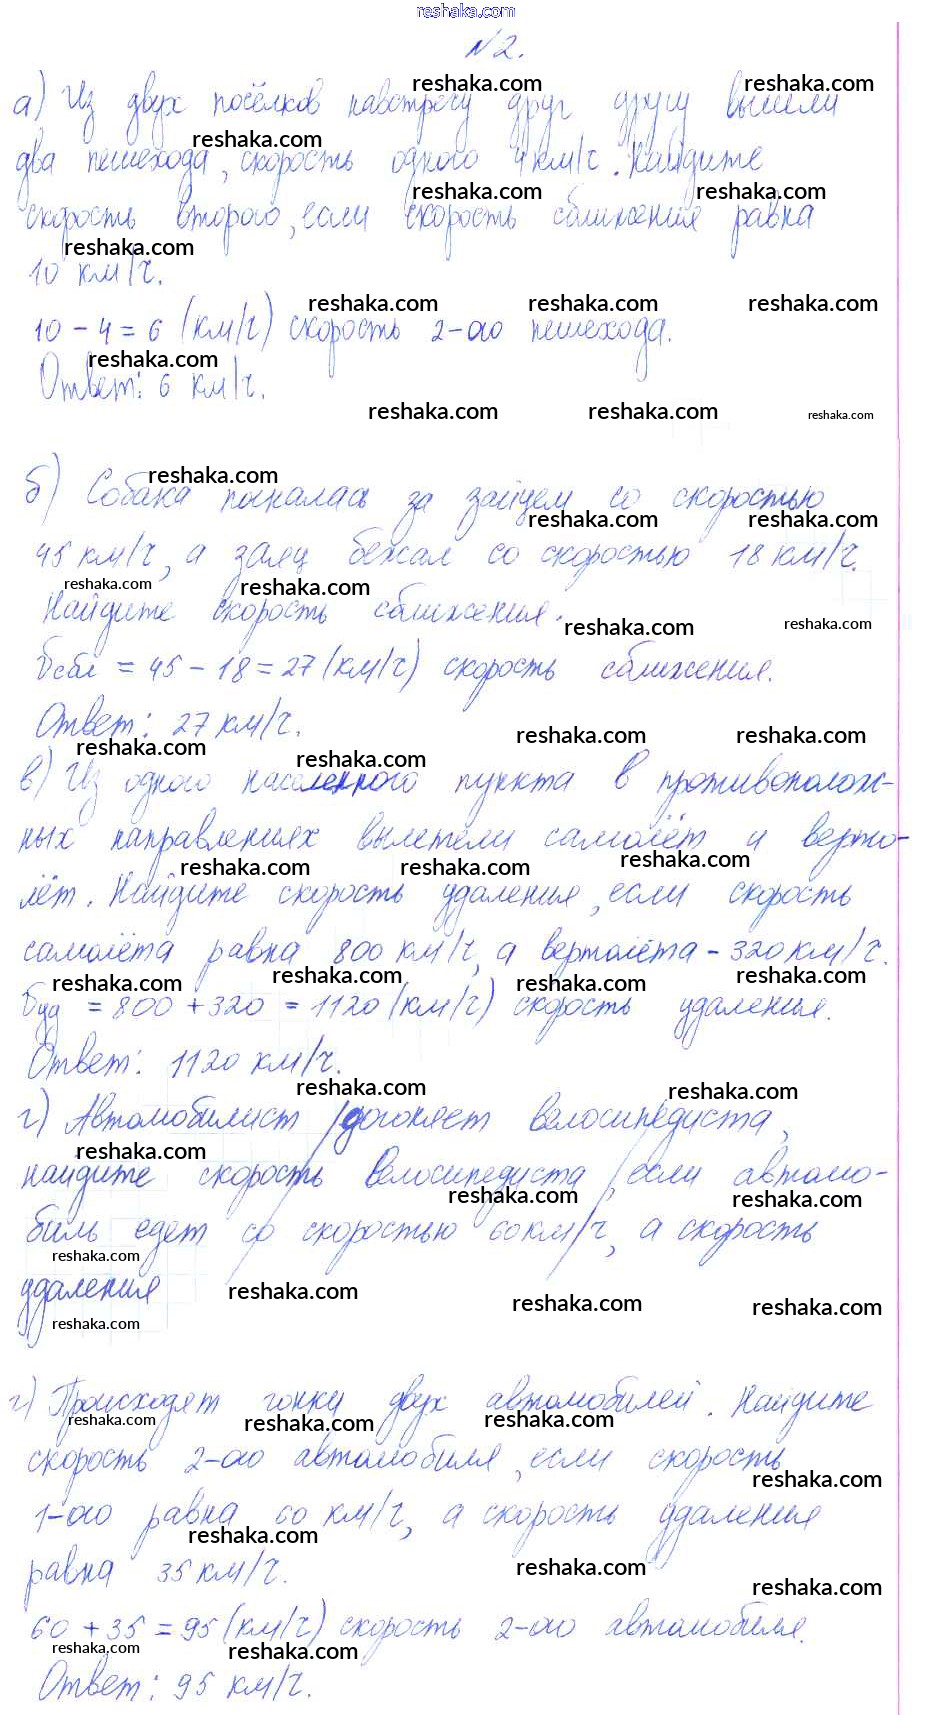 reshaka.com
№2.
а) Из двух посёлков навстречу друг другу вышли
два пешехода, скорость одного 4 км/ч. Найдите
скорость второго, если скорость сближения равна
10 км/ч.
10 - 4 = 6 (км/ч) скорость 2-ого пешехода.
Ответ: 6 км/ч.
б) Собака погналась за зайцем со скоростью
45 км/ч, а заяц бежал со скоростью 18 км/ч.
Найдите скорость сближения.
υсбл = 45 - 18 = 27 (км/ч) скорость сближения.
Ответ: 27 км/ч.
в) Из одного населенного пункта в противополож-
ных направлениях вылетели самолёт и верто-
лёт. Найдите скорость удаления, если скорость
самолёта равна 800 км/ч, а вертолёта - 320 км/ч.
υуд = 800 + 320 = 1120 (км/ч) скорость удаления.
Ответ: 1120 км/ч.
г) Автомобилист догоняет велосипедиста,
найдите скорость велосипедиста, если автомо-
биль едет со скоростью 60 км/ч, а скорость
удаления
г) Происходят гонки двух автомобилей. Найдите
скорость 2-ого автомобиля, если скорость
1-ого равна 60 км/ч, а скорость удаления
равна 35 км/ч.
60 + 35 = 95 (км/ч) скорость 2-ого автомобиля.
Ответ: 95 км/ч.